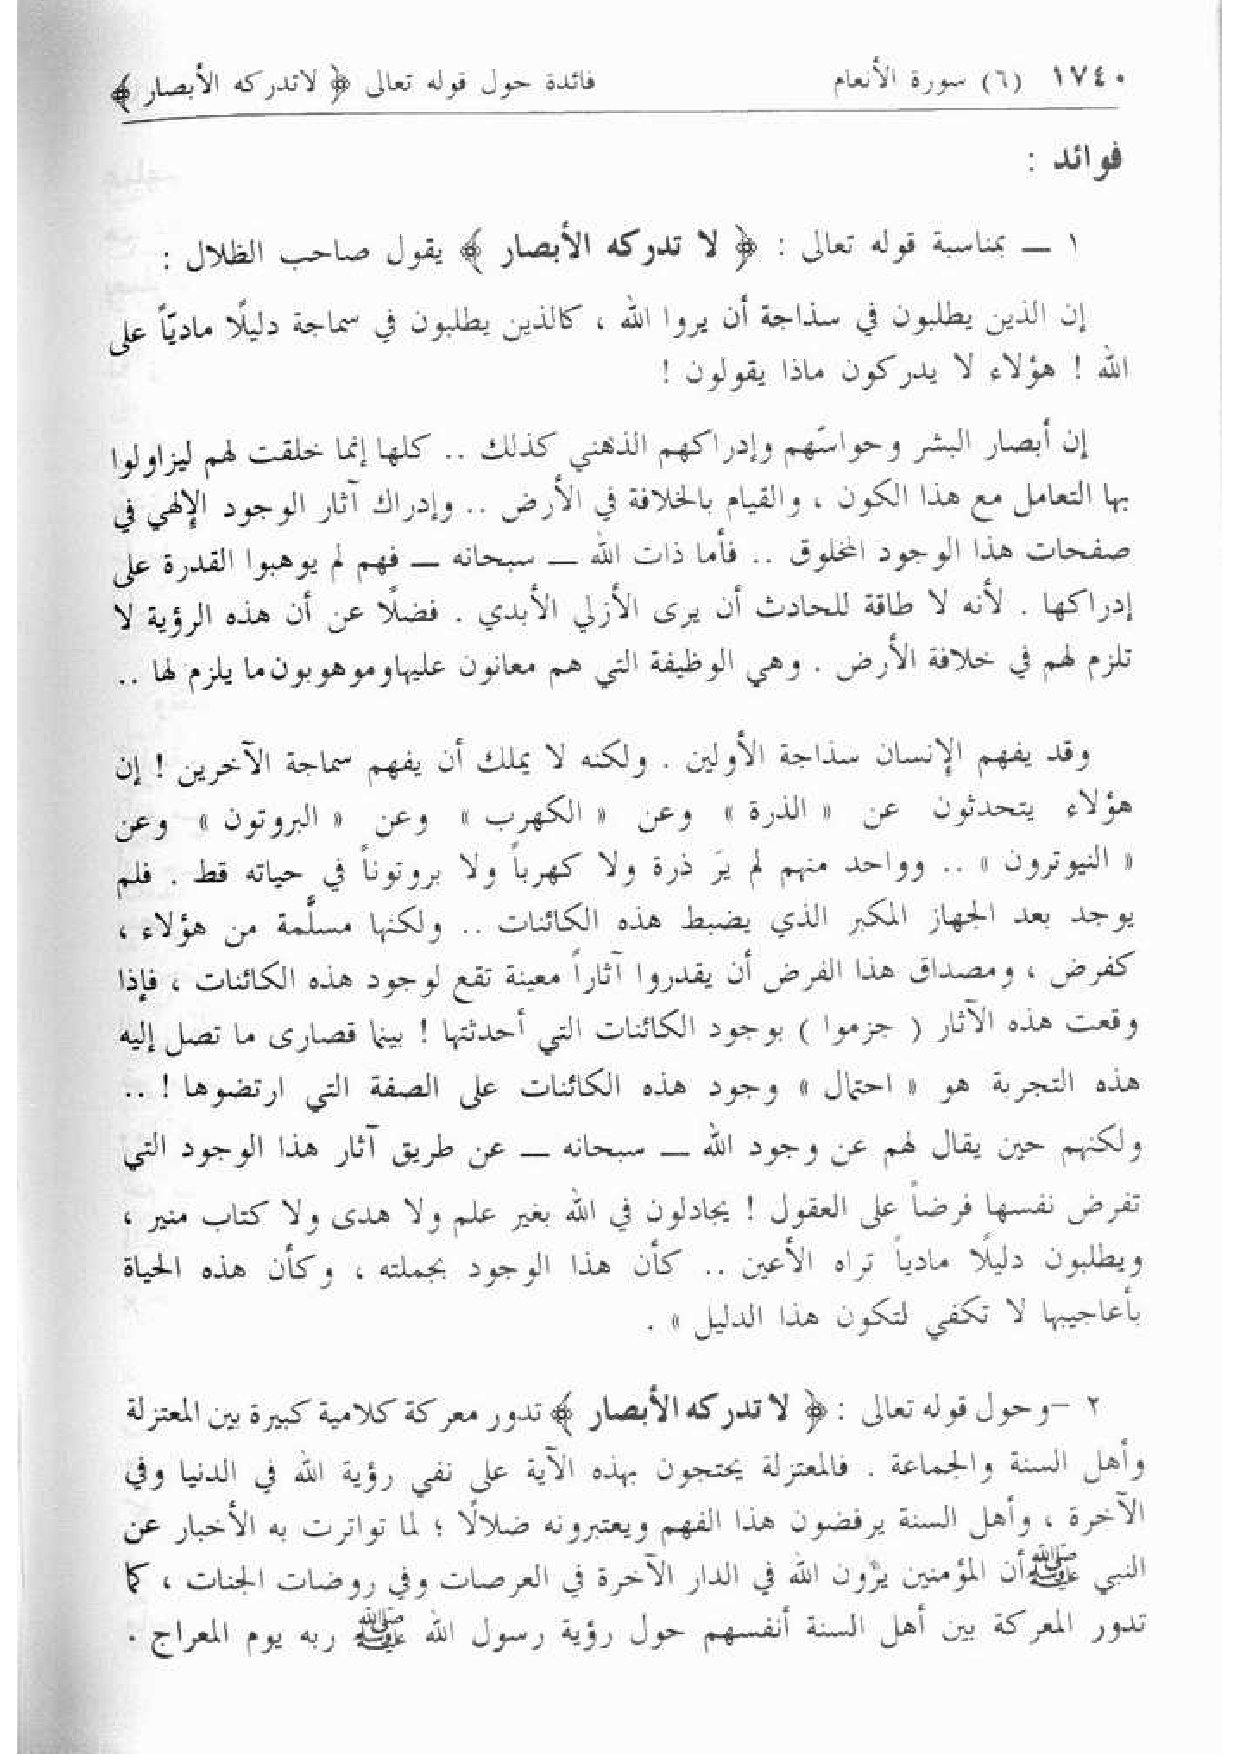 ١٧٤٠ (٦) سورة الأنعام فائدة حول قوله تعالى ﴿ لاتدركه الأبصار ﴾
فوائد :
١ ــ بمناسبة قوله تعالى : ﴿ لا تدركه الأبصار ﴾ يقول صاحب الظلال :
إن الذين يطلبون في سذاجة أن يروا الله ، كالذين يطلبون في سماجة دليلًا ماديّاً على
الله ! هؤلاء لا يدركون ماذا يقولون !
إن أبصار البشر وحواسَهم وإدراكهم الذهني كذلك .. كلها إنما خلقت لهم ليزاولوا
بها التعامل مع هذا الكون ، والقيام بالخلافة في الأرض .. وإدراك آثار الوجود الإلهي في
صفحات هذا الوجود المخلوق .. فأما ذات الله ــ سبحانه ــ فهم لم يوهبوا القدرة على
إدراكها . لأنه لا طاقة للحادث أن يرى الأزلي الأبدي . فضلًا عن أن هذه الرؤية لا
تلزم لهم في خلافة الأرض . وهي الوظيفة التي هم معانون عليها وموهوبون ما يلزم لها ..
وقد يفهم الإنسان سذاجة الأولين . ولكنه لا يملك أن يفهم سماجة الآخرين ! إن
هؤلاء يتحدثون عن « الذرة » وعن « الكهرب » وعن « البروتون » وعن
« النيوترون » .. وواحد منهم لم يَر ذرة ولا كهرباً ولا بروتوناً في حياته قط . فلم
يوجد بعد الجهاز المكبر الذي يضبط هذه الكائنات .. ولكنها مسلَّمة من هؤلاء ،
كفرض ، ومصداق هذا الفرض أن يقدروا آثاراً معينة تقع لوجود هذه الكائنات ، فإذا
وقعت هذه الآثار ( جزموا ) بوجود الكائنات التي أحدثتها ! بينما قصارى ما تصل إليه
هذه التجربة هو « احتمال » وجود هذه الكائنات على الصفة التي ارتضوها ! ..
ولكنهم حين يقال لهم عن وجود الله ــ سبحانه ــ عن طريق آثار هذا الوجود التي
تفرض نفسها فرضاً على العقول ! يجادلون في الله بغير علم ولا هدى ولا كتاب منير ،
ويطلبون دليلًا مادياً تراه الأعين .. كأن هذا الوجود بجملته ، وكأن هذه الحياة
بأعاجيبها لا تكفي لتكون هذا الدليل » .
٢ -وحول قوله تعالى : ﴿ لا تدركه الأبصار ﴾ تدور معركة كلامية كبيرة بين المعتزلة
وأهل السنة والجماعة . فالمعتزلة يحتجون بهذه الآية على نفي رؤية الله في الدنيا وفي
الآخرة ، وأهل السنة يرفضون هذا الفهم ويعتبرونه ضلالًا ؛ لما تواترت به الأخبار عن
النبي ﷺ أن المؤمنين يرَون الله في الدار الآخرة في العرصات وفي روضات الجنات ، كما
تدور المعركة بين أهل السنة أنفسهم حول رؤية رسول الله ﷺ ربه يوم المعراج .